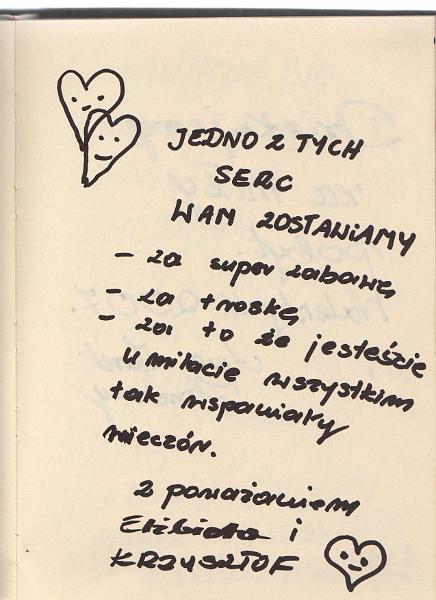 JEDNO Z TYCH
SERC
WAM ZOSTAWIAMY
- za super zabawę
- za troskę
- za to że jesteście
umilacie wszystkim
tak wspaniały
wieczór.
Z poważaniem
Elżbieta i
KRZYSZTOF